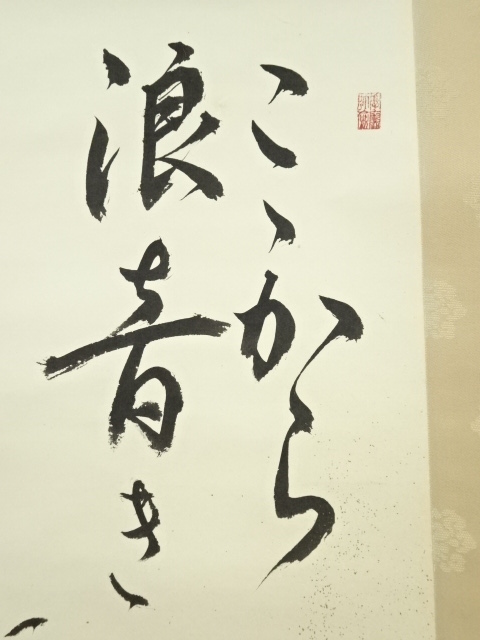 こゝから
浪音き